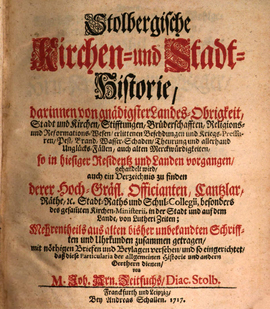 Stolbergische
Kirchen- und Stadt-
Historie/
darinnen von gnädigster Landes-Obrigkeit,
Stadt und Kirchen, Stifftungen, Brüderschafften, Religions-
und Reformations-Wesen/ erlittenen Befehdungen und Kriegs-Pressu-
ren/ Pest, Brand, Wasser-Schaden/ Theurung und allerhand
Unglücks-Fällen, auch alten Merckwürdigkeiten,
so in hiesiger Residentz und Landen vorgangen/
gehandelt wird/
auch ein Verzeichnis zu finden
derer Hoch-Gräfl. Officianten, Cantzlar,
Räthe, it. Stadt-Raths und Schul-Collegii, besonders
des gesamten Kirchen-Ministerii, in der Stadt und auf dem
Lande, von Luthers Zeiten;
Mehrentheils aus alten bisher unbekandten Schriff-
ten und Uhrkunden zusammen getragen/
mit nöthigen Briefen und Beylagen versehen/ und so eingerichtet/
daß diese Particularia der allgemeinen Historie und andern
Oerthern dienen/
von
M. Joh. Arn. Zeitfuchs/ Diac. Stolb.
Franckfurth und Leipzig/
Bey Andreas Schallen. 1717.